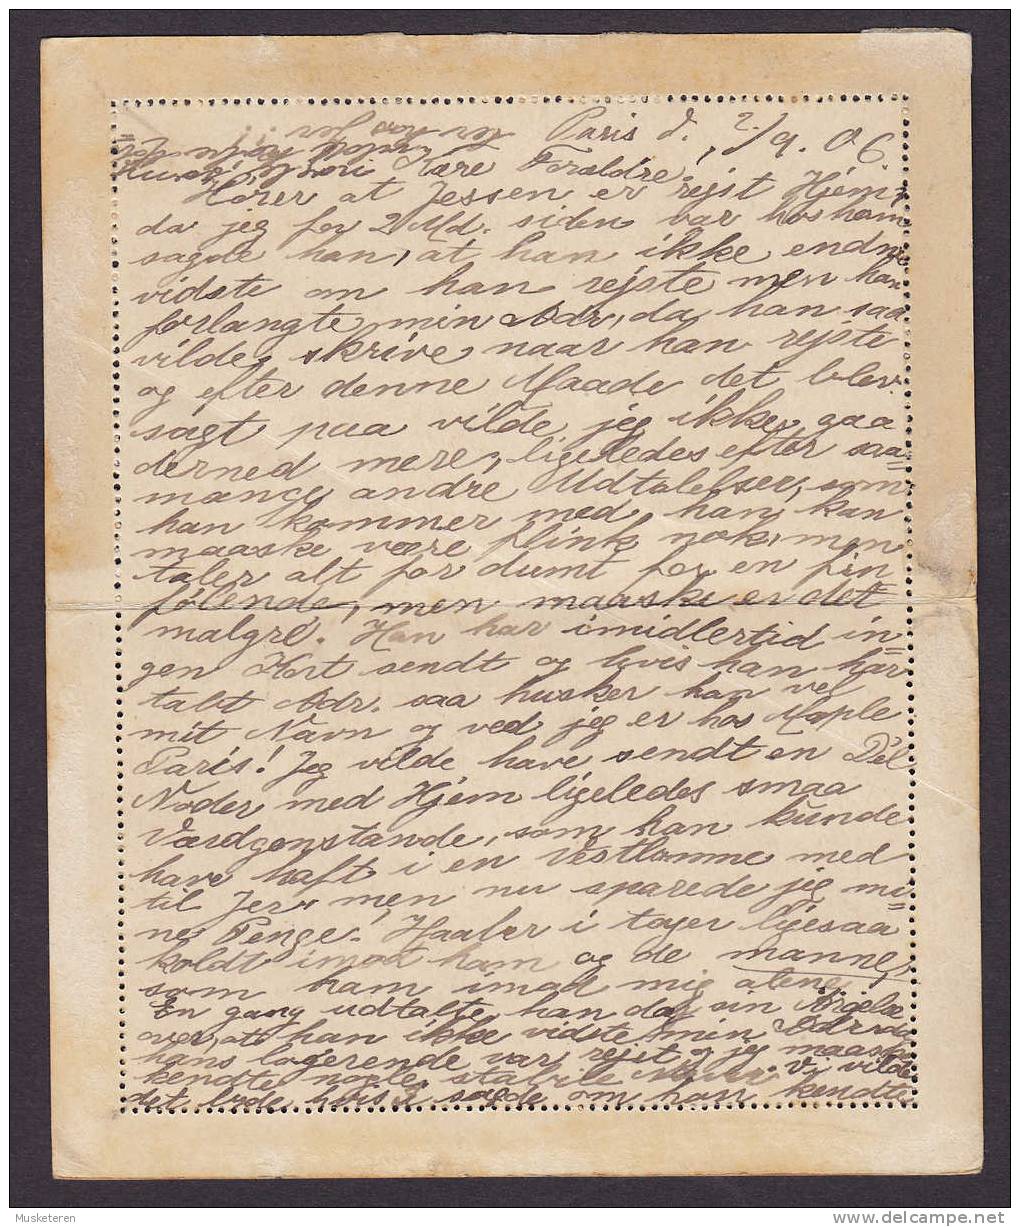 Paris d. 2/9. 06.
Kære Forældre!
Hører at Jessen er rejst Hjem,
da jeg for 2 Md. siden var hos ham
sagde han, at han ikke endnu
vidste om han rejste men han
forlangte min Adr, da han saa
vilde skrive naar han rejste
og efter denne Maade det blev
sagt paa vilde jeg ikke gaa
derned mere, ligeledes efter saa=
mange andre Udtalelser, som
han kommer med, han kan
maaske være flink nok, men
taler alt for dumt for en fin
følende, men maaske er det
malgré! Han har imidlertid in=
gen Kort sendt og hvis han har
tabt Adr. saa husker han vel
mit Navn og ved jeg er hos Maple
Paris! Jeg vilde have sendt en Del
Noder med Hjem ligeledes smaa
Værdgenstande, som han kunde
have haft i en Vestlomme med
til Jer, men nu sparede jeg mi=
ne Penge! Haaber i tager ligesaa
koldt imod ham og de manne,
som ham imod mig
En gang udtalte han da sin
over, at han ikke vidste min Adr da
hans logerende var rejst og jeg maaske
kendte nogle stabile vilde
det lyde hvis i sagde om han kendte
Musketeren
delcampe.net